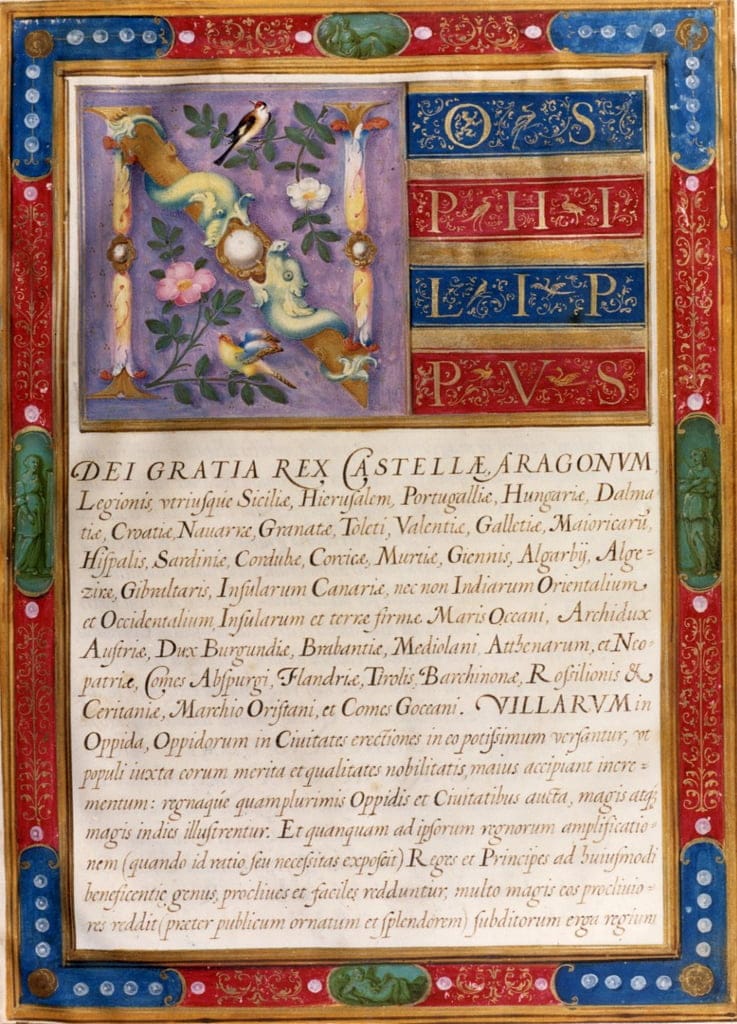 NOS
PHI
LIP
PVS
DEI GRATIA REX CASTELLÆ, ARAGONVM
Legionis, vtriusque Siciliæ, Hierusalem, Portugalliæ, Hungariæ, Dalma
tiæ, Croatiæ, Nauarræ, Granatæ, Toleti, Valentiæ, Galletiæ, Maioricarũ,
Hispalis, Sardiniæ, Cordubæ, Corcicæ, Murtiæ, Giennis, Algarbij, Alge-
ziræ, Gibraltaris, Insularum Canariæ, nec non Indiarum Orientalium
et Occidentalium, Insularum et terræ firmæ Maris Oceani, Archidux
Austriæ, Dux Burgundiæ, Brabantiæ, Mediolani, Atthenarum, et Neo-
patriæ, Comes Abspurgi, Flandriæ, Tirolis, Barchinonæ, Rossilionis &
Ceritaniæ, Marchio Oristani, et Comes Goceani. VILLARVM in
Oppida, Oppidorum in Ciuitates erectiones in eo potissimum versantur, vt
populi iuxta eorum merita et qualitates nobilitatis, maius accipiant incre-
mentum: regnaque quamplurimis Oppidis et Ciuitatibus aucta, magis atq;
magis indies illustrentur. Et quanquam ad ipsorum regnorum amplificatio-
nem (quando id ratio seu necessitas exposcit) Reges et Principes ad huiusmodi
beneficentię genus, procliues et faciles redduntur, multo magis eos procliuio-
res reddit (præter publicum ornatum et splendorem) subditorum erga regium